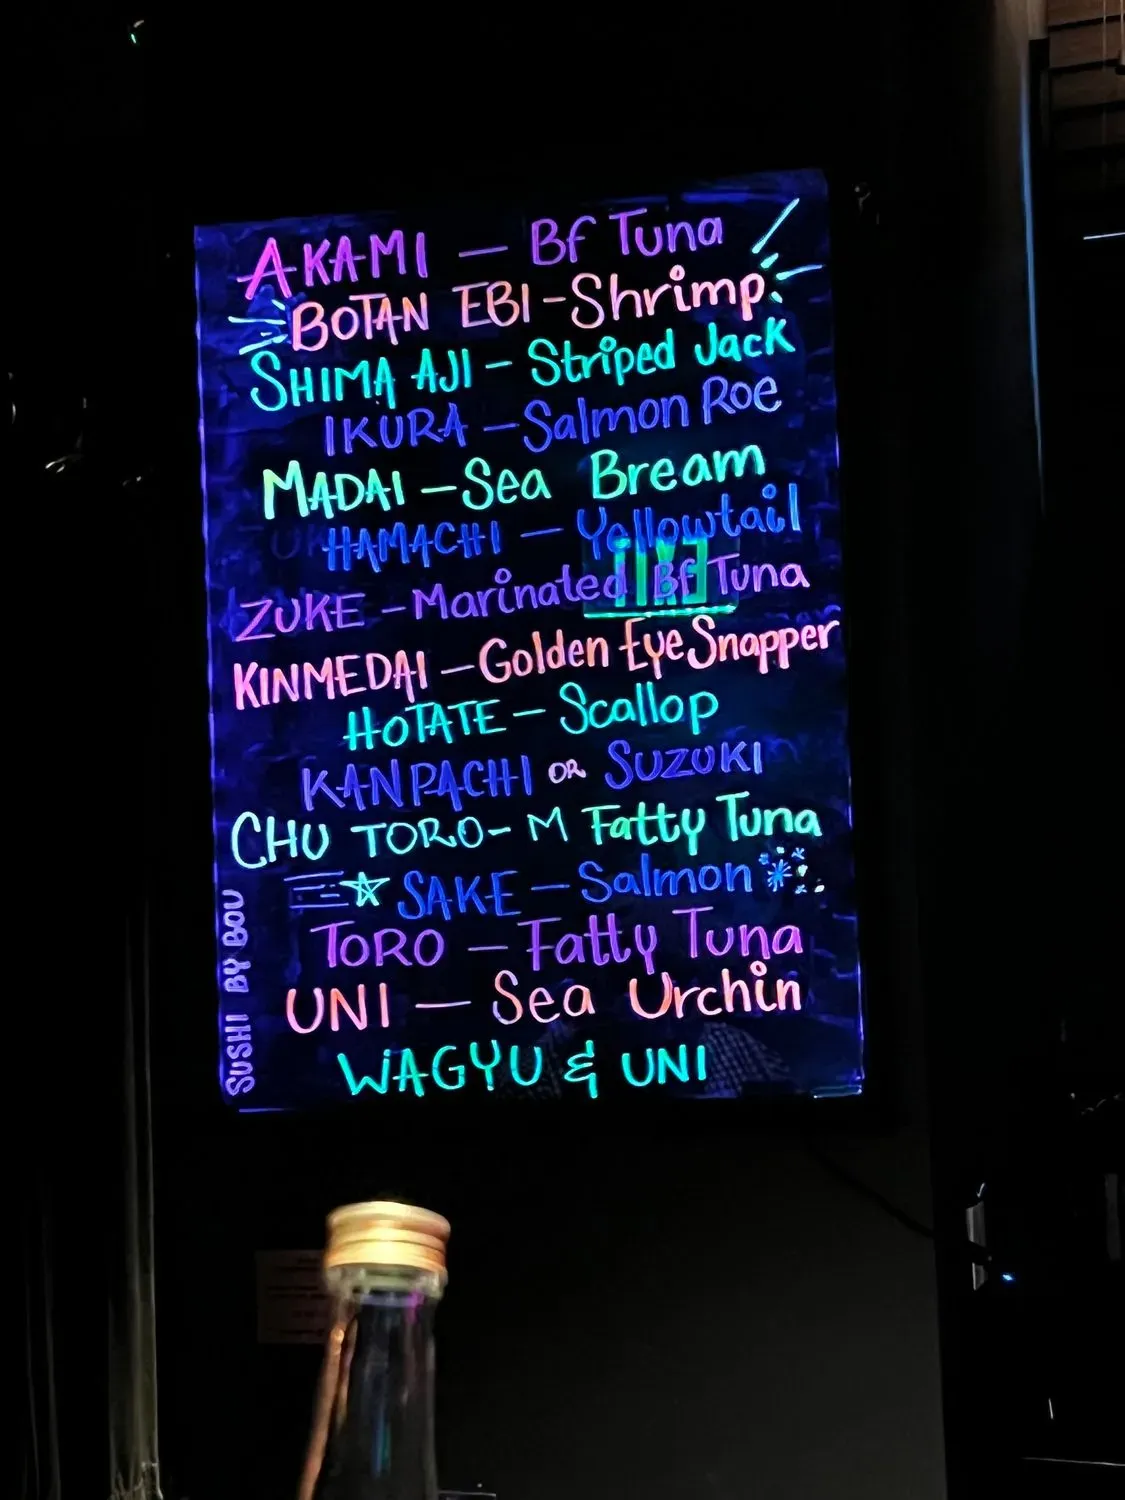 AKAMI — Bf Tuna
BOTAN EBI - Shrimp
SHIMA AJI - Striped Jack
IKURA - Salmon Roe
MADAI - Sea Bream
HAMACHI - Yellowtail
EXIT
ZUKE - Marinated Bf Tuna
KINMEDAI - Golden Eye Snapper
HOTATE - Scallop
KANPACHI OR SUZUKI
CHU TORO - M Fatty Tuna
SAKE - Salmon
TORO - Fatty Tuna
UNI — Sea Urchin
WAGYU & UNI
SUSHI BY BOU